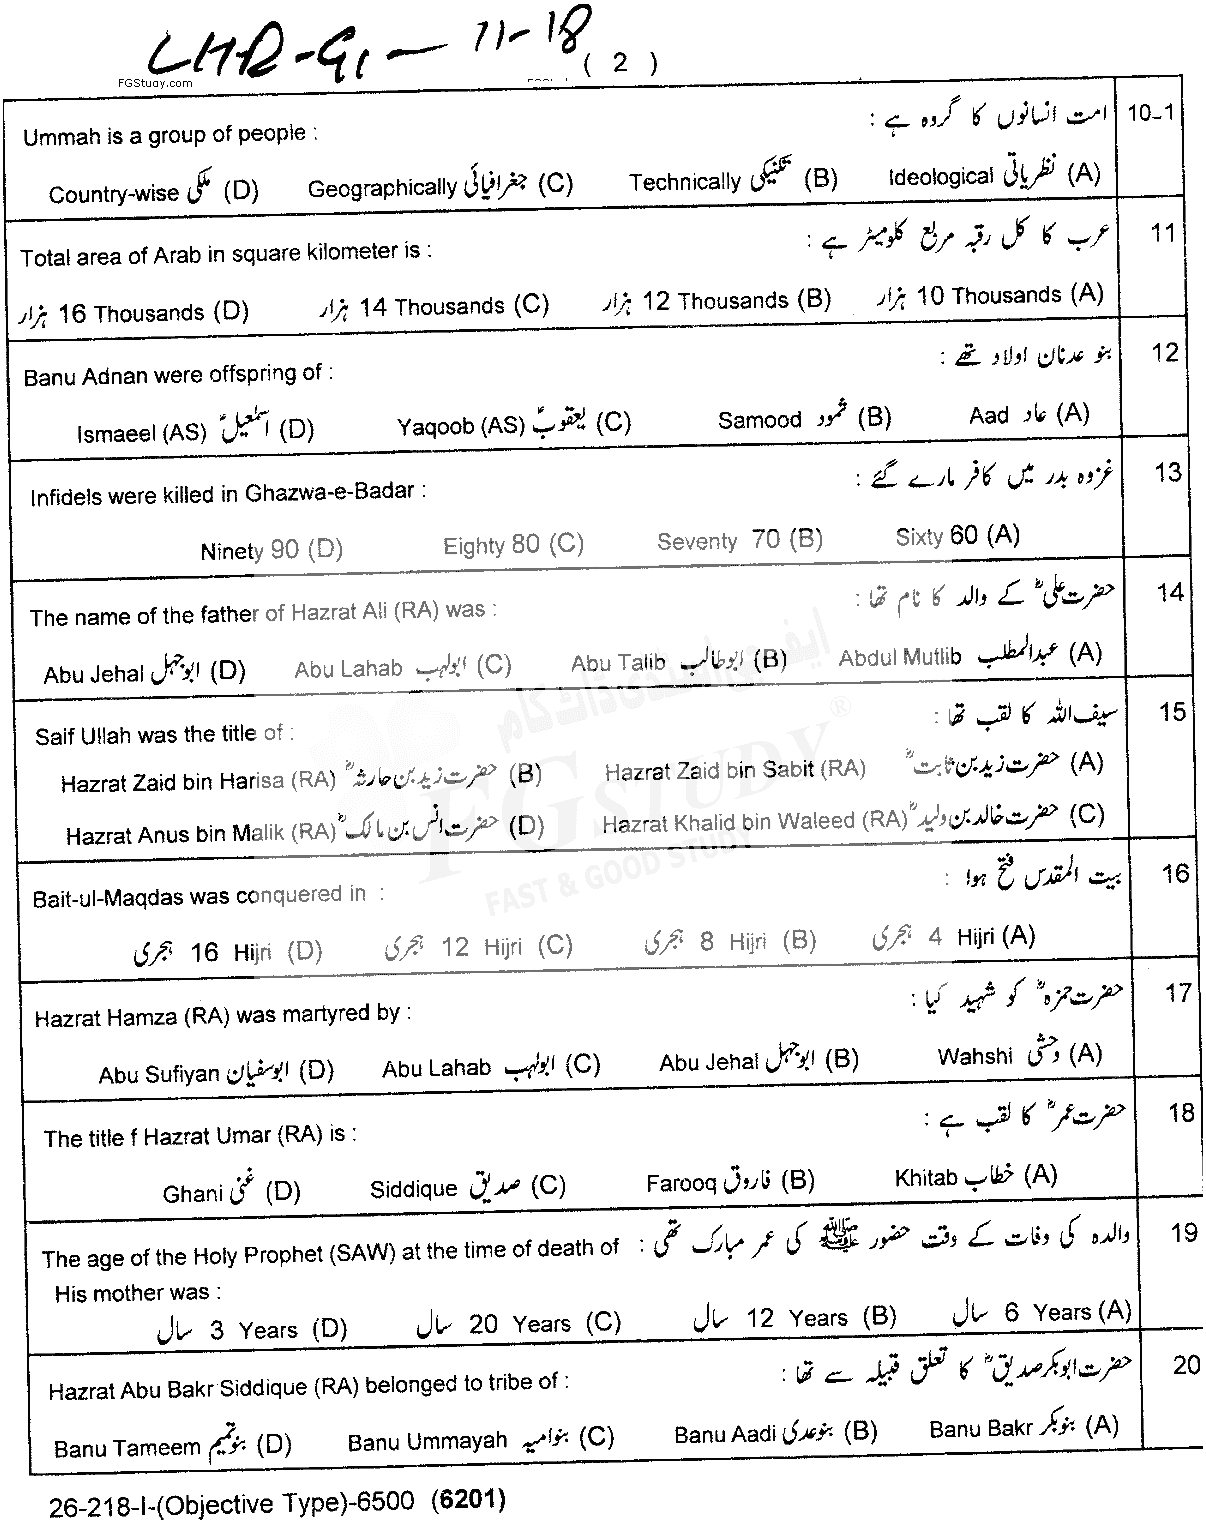 LHR-G1-11-18
( 2 )
FGStudy.com
Ummah is a group of people : امت انسانوں کا گروہ ہے : 10-1
Country-wise ملکی (D) Geographically جغرافیائی (C) Technically تکنیکی (B) Ideological نظریاتی (A)
Total area of Arab in square kilometer is : عرب کا کل رقبہ مربع کلومیٹر ہے : 11
ہزار 16 Thousands (D) ہزار 14 Thousands (C) ہزار 12 Thousands (B) ہزار 10 Thousands (A)
Banu Adnan were offspring of : بنو عدنان اولاد تھے : 12
Ismaeel (AS) اسمٰعیلؑ (D) Yaqoob (AS) یعقوبؑ (C) Samood ثمود (B) Aad عاد (A)
Infidels were killed in Ghazwa-e-Badar : غزوہ بدر میں کافر مارے گئے : 13
Ninety 90 (D) Eighty 80 (C) Seventy 70 (B) Sixty 60 (A)
The name of the father of Hazrat Ali (RA) was : حضرت علیؓ کے والد کا نام تھا : 14
Abu Jehal ابوجہل (D) Abu Lahab ابولہب (C) Abu Talib ابوطالب (B) Abdul Mutlib عبدالمطلب (A)
Saif Ullah was the title of : سیف اللہ کا لقب تھا : 15
Hazrat Zaid bin Harisa (RA) حضرت زید بن حارثہؓ (B) Hazrat Zaid bin Sabit (RA) حضرت زید بن ثابتؓ (A)
Hazrat Anus bin Malik (RA) حضرت انس بن مالکؓ (D) Hazrat Khalid bin Waleed (RA) حضرت خالد بن ولیدؓ (C)
Bait-ul-Maqdas was conquered in : بیت المقدس فتح ہوا : 16
ہجری 16 Hijri (D) ہجری 12 Hijri (C) ہجری 8 Hijri (B) ہجری 4 Hijri (A)
Hazrat Hamza (RA) was martyred by : حضرت حمزہؓ کو شہید کیا : 17
Abu Sufiyan ابوسفیان (D) Abu Lahab ابولہب (C) Abu Jehal ابوجہل (B) Wahshi وحشی (A)
The title f Hazrat Umar (RA) is : حضرت عمرؓ کا لقب ہے : 18
Ghani غنی (D) Siddique صدیق (C) Farooq فاروق (B) Khitab خطاب (A)
The age of the Holy Prophet (SAW) at the time of death of والدہ کی وفات کے وقت حضور ﷺ کی عمر مبارک تھی : 19
His mother was :
سال 3 Years (D) سال 20 Years (C) سال 12 Years (B) سال 6 Years (A)
Hazrat Abu Bakr Siddique (RA) belonged to tribe of : حضرت ابوبکر صدیقؓ کا تعلق قبیلہ سے تھا : 20
Banu Tameem بنو تمیم (D) Banu Ummayah بنو امیہ (C) Banu Aadi بنو عدی (B) Banu Bakr بنو بکر (A)
26-218-I-(Objective Type)-6500 (6201)
ایف جی سٹڈی ڈاٹ کام
FGSTUDY®
FAST & GOOD STUDY